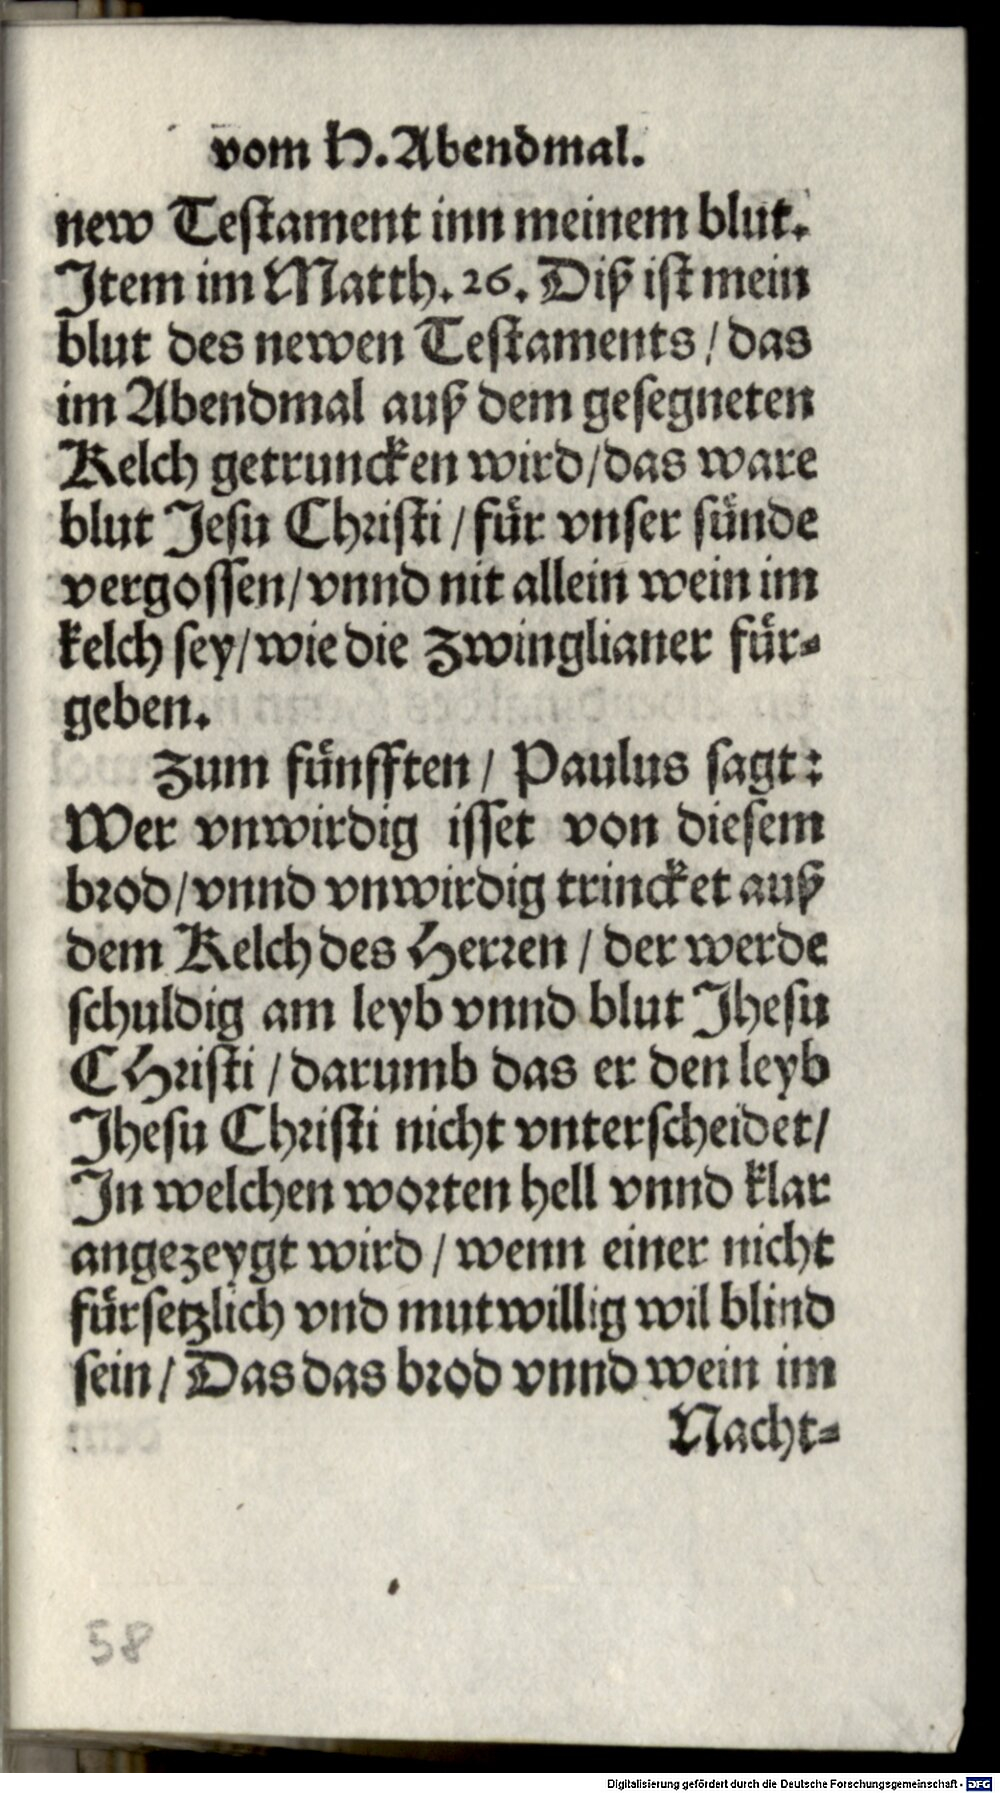 vom H. Abendmal.
new Testament inn meinem blut.
Item im Matth. 26. Diß ist mein
blut des newen Testaments / das
im Abendmal auß dem gesegneten
Kelch getruncken wird / das ware
blut Jesu Christi / für vnser sünde
vergossen / vnnd nit allein wein im
kelch sey / wie die Zwinglianer für-
geben.
Zum fünfften / Paulus sagt:
Wer vnwirdig isset von diesem
brod / vnnd vnwirdig trincket auß
dem Kelch des Herren / der werde
schuldig am leyb vnnd blut Jhesu
CHristi / darumb das er den leyb
Jhesu Christi nicht vnterscheidet /
In welchen worten hell vnnd klar
angezeygt wird / wenn einer nicht
fürsetzlich vnd mutwillig wil blind
sein / Das das brod vnnd wein im
Nacht-
58
Digitalisierung gefördert durch die Deutsche Forschungsgemeinschaft - DFG